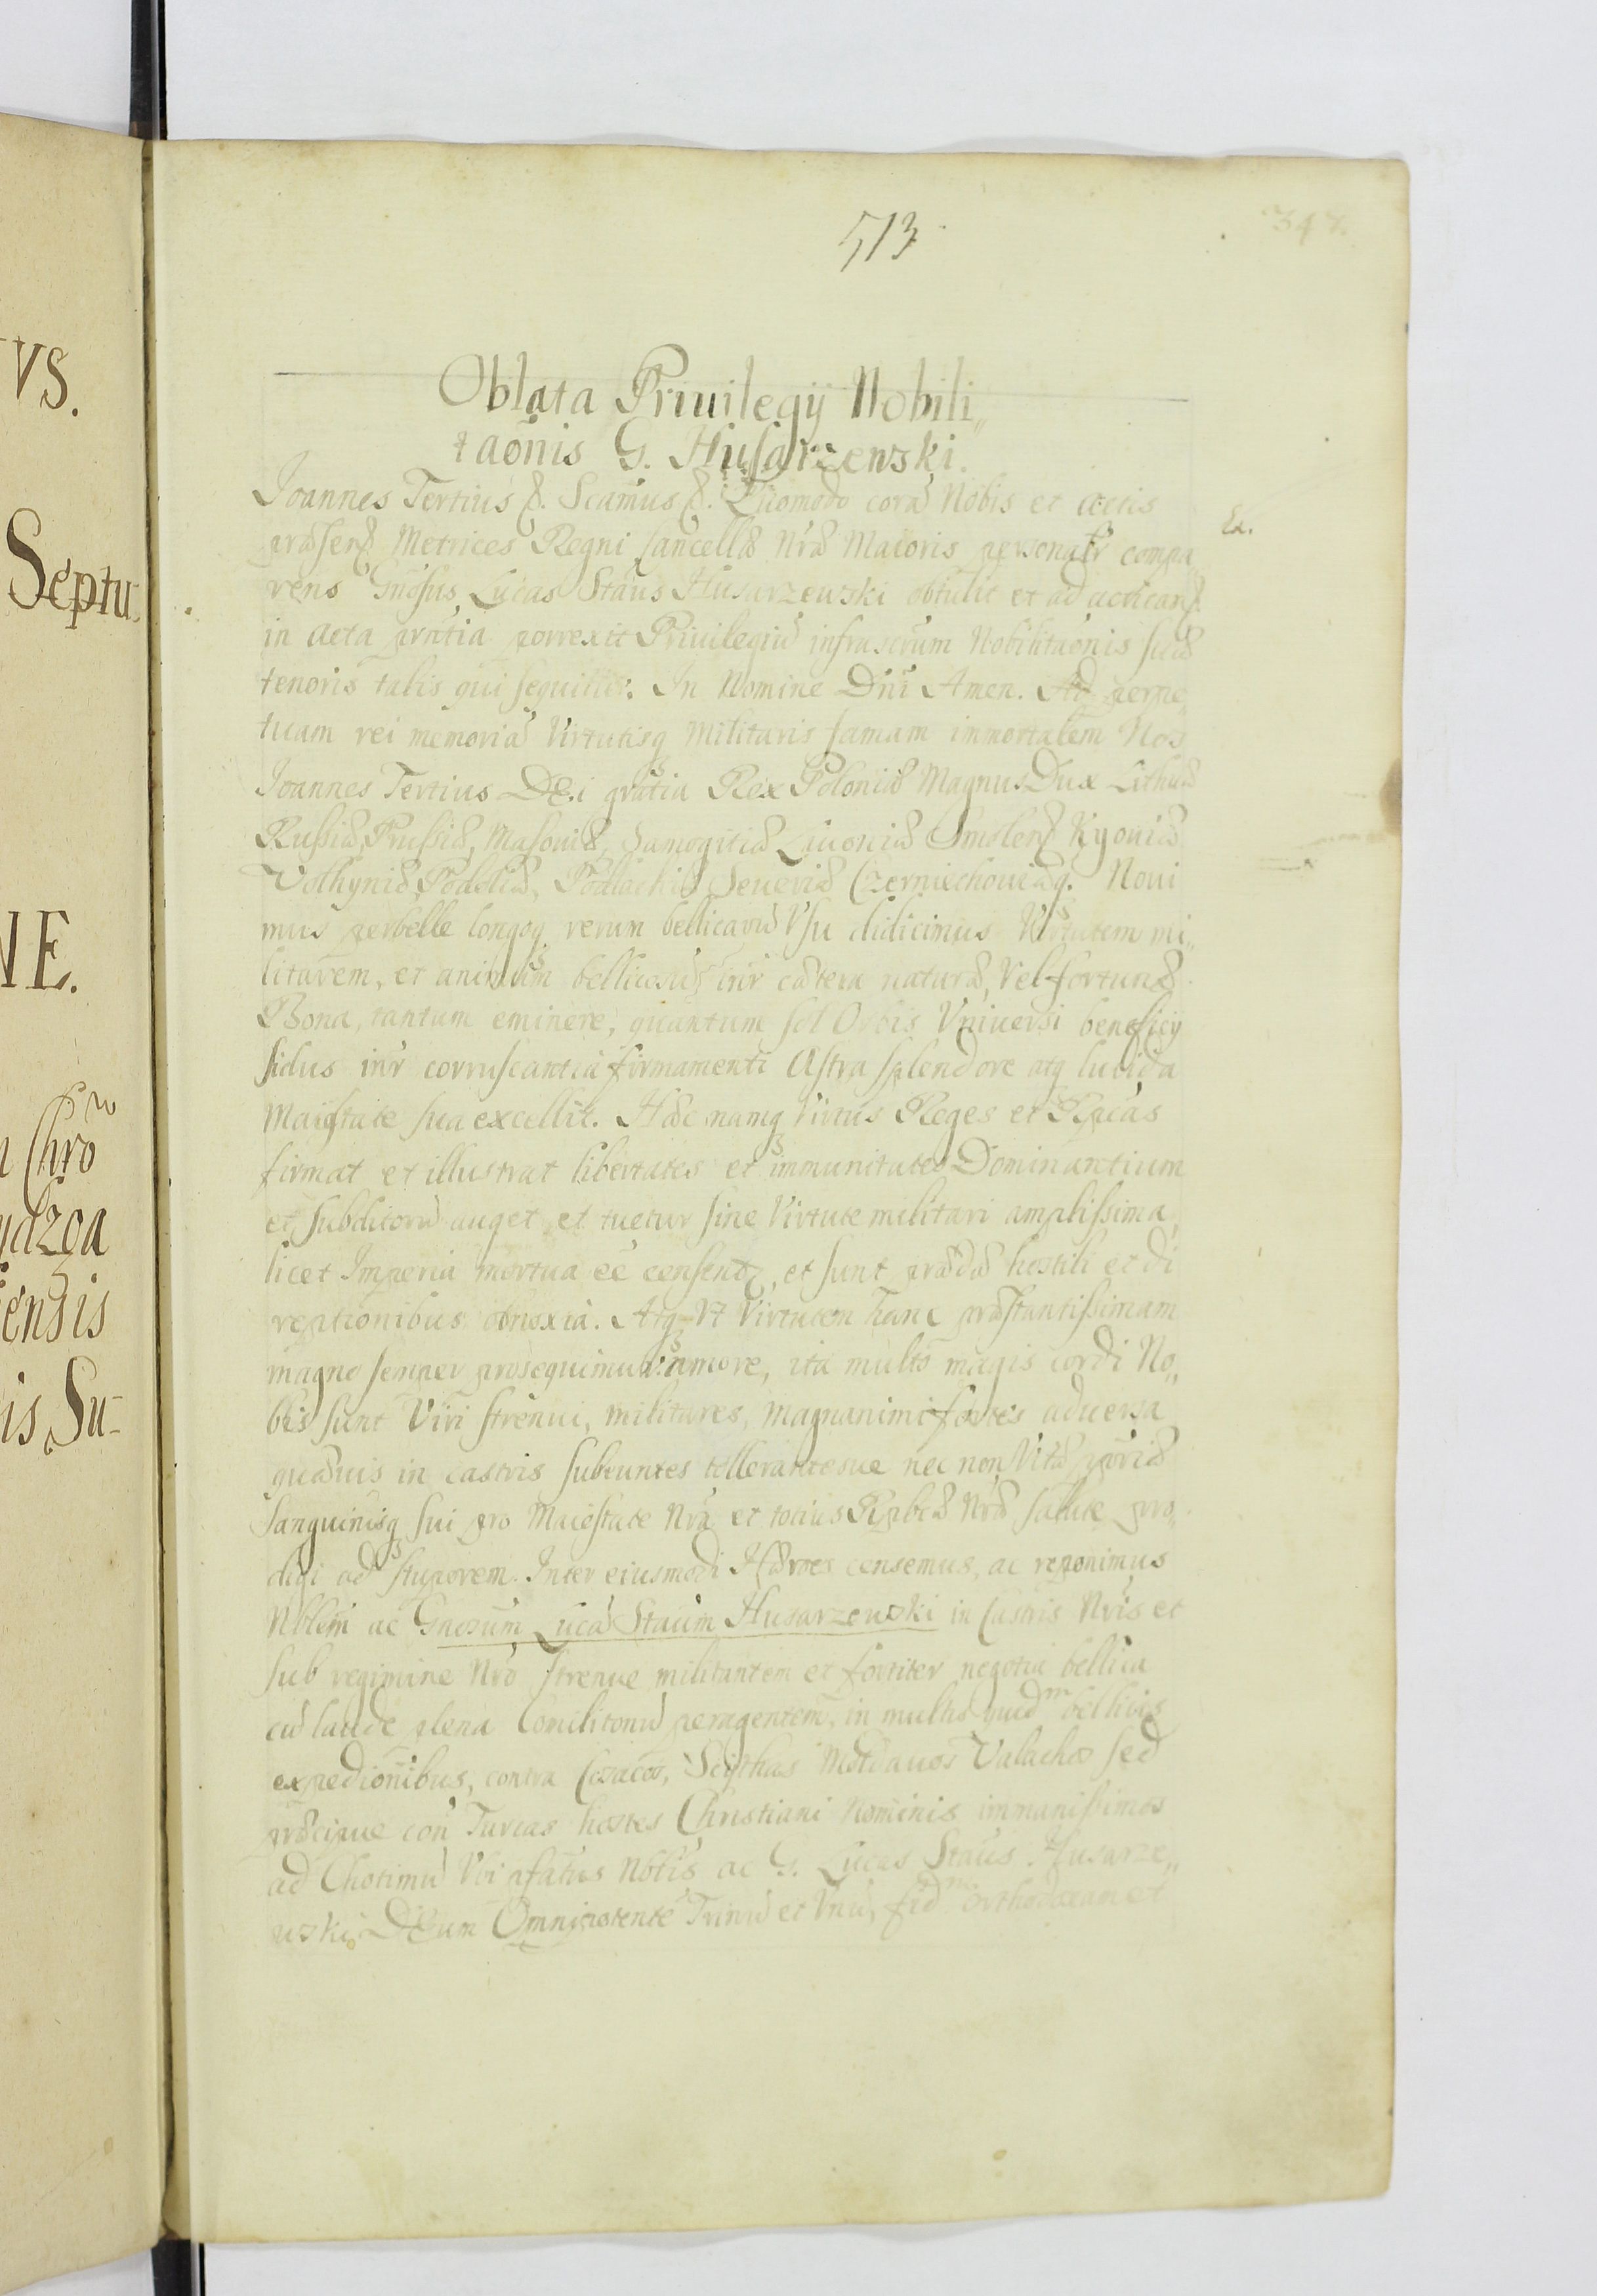 VS.
Septu-
NE.
n Chro
ydzga
iensis
is Su-
513
347.
Oblata Priuilegÿ Nobili„
taõnis G. Husarzewski.
Joannes Tertius &. Scãmus &. Quomodo corã Nobis et actis
præsen& Metrices Regni Cancellæ Nræ Maioris personalr compa„
Ex.
rens Gnõsus Lucas Stãus Husarzewski obtulit et ad actican&
in acta prãtia porrexit Priuilegiũ infrascrũm Nobilitaõnis suæ
tenoris talis qui sequitur. In Nomine Dñi Amen. Ad perpe„
tuam rei memoriã Virtutisq Militaris famam immortalem Nos
Joannes Tertius DEi grãtia Rex Poloniæ Magnus Dux Lithuæ
Russiæ, Prussiæ, Masouiæ, Samogitiæ Liuoniæ Smolen& Kyouiæ
Volhyniæ, Podoliæ, Podlachiæ Seueriæ Czerniechouiæq. Noui
mus perbelle longoq rerum bellicarũ Vsu didicimus Virtutem mi„
litarem, et animũm bellicosũ inr cætera naturæ, Vel fortunæ
Bona, tantum eminere, quantum sol Orbis Vniuersi beneficÿ
sidus inr corruscantia firmamenti Astra splendore atq lucida
Maiestate sua excellit. Hæc namq Virtus Reges et Rpcas
firmat et illustrat libertates et immunitates Dominantium
et subditorũ auget et tuetur sine Virtute militari amplissima
licet Imperia mortua eẽ censent&, et sunt prædæ hostili et di
reptionibus obnoxia. Atq Vt Virtutem hanc præstantissimam
magno semper prosequimur amore, ita multo magis cordi No„
bis sunt Viri strenui, militares, magnanimi fortes aduersa
quæuis in castris subeuntes tollerantesue nec non Vitæ ppriæ
Sanguinisq sui pro Maiestate Nrã et totius Rpbcæ Nræ salute pro„
digi ad stuporem. Inter eiusmodi Hæroes censemus, ac reponimus
Nblem ac Gnosum Lucã Staũm Husarzewski in Castris Nris et
sub regimine Nro strenue militantem et fortiter negotia bellica
cũ laude plena Comilitonũ peragentem, in multis quidm bellicis
expediõnibus, contra Cosacos, Scythas Moldauos Valachos sed
præcipue con Turcas hostes Christiani Nominis immanissimos
ad Chotimũ Vbi pfatus Nblis ac G. Lucas Stãus Husarze„
wski DEum Omnipotentẽ Trinũ et Vnũ, fidm orthodoxam et